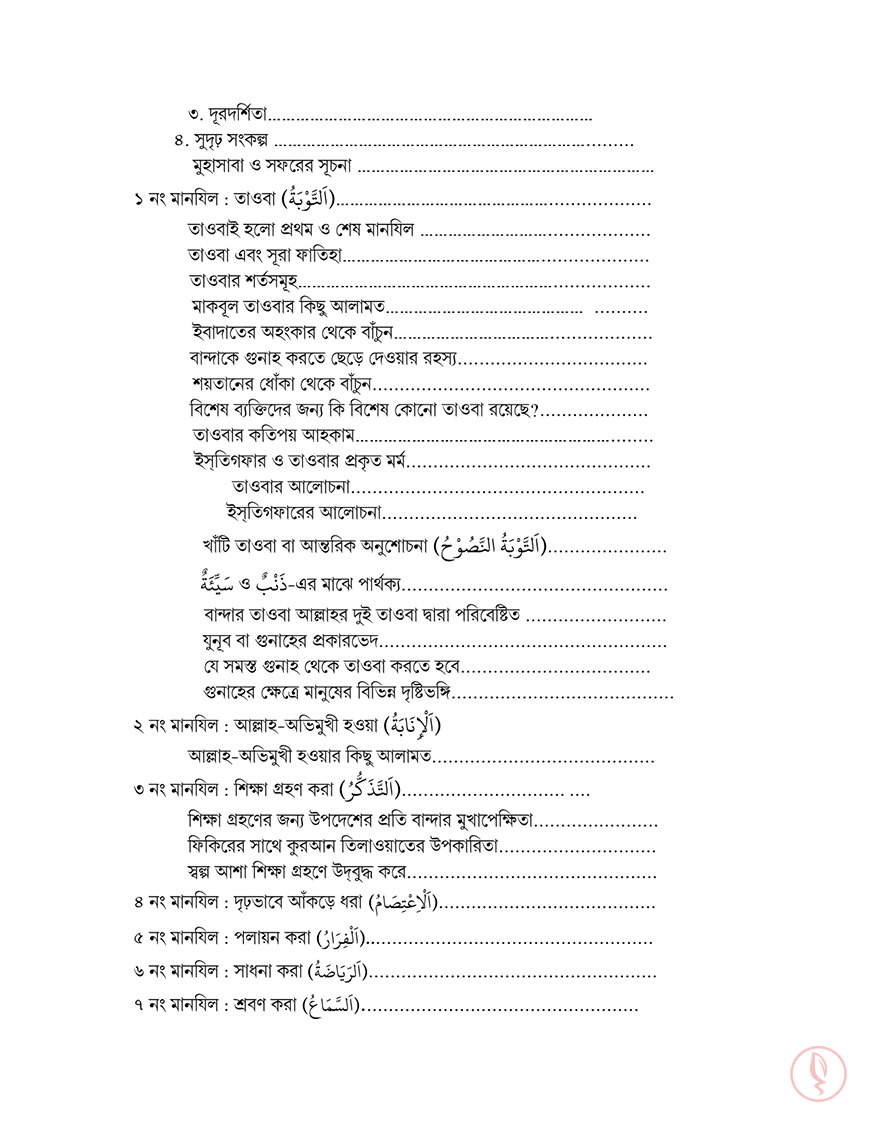 ৩. দূরদর্শিতা……………………………………………………………
৪. সুদৃঢ় সংকল্প ……………………………………………………………………
মুহাসাবা ও সফরের সূচনা ………………………………………………………
১ নং মানযিল : তাওবা (اَلتَّوْبَةُ)……………………………………………………
তাওবাই হলো প্রথম ও শেষ মানযিল ……………………………………
তাওবা এবং সূরা ফাতিহা……………………………………………………
তাওবার শর্তসমূহ……………………………………………………………
মাকবূল তাওবার কিছু আলামত…………………………………… ……….
ইবাদাতের অহংকার থেকে বাঁচুন……………………………………………
বান্দাকে গুনাহ করতে ছেড়ে দেওয়ার রহস্য……………………………
শয়তানের ধোঁকা থেকে বাঁচুন……………………………………………
বিশেষ ব্যক্তিদের জন্য কি বিশেষ কোনো তাওবা রয়েছে?…………………
তাওবার কতিপয় আহকাম……………………………………………………
ইস্‌তিগফার ও তাওবার প্রকৃত মর্ম………………………………………
তাওবার আলোচনা………………………………………………
ইস্‌তিগফারের আলোচনা…………………………………………
খাঁটি তাওবা বা আন্তরিক অনুশোচনা (اَلتَّوْبَةُ النَّصُوْحُ)…………………
سَيِّئَةٌ ও ذَنْبٌ-এর মাঝে পার্থক্য……………………………………………
বান্দার তাওবা আল্লাহর দুই তাওবা দ্বারা পরিবেষ্টিত …………………
যুনূব বা গুনাহের প্রকারভেদ………………………………………………
যে সমস্ত গুনাহ থেকে তাওবা করতে হবে………………………………
গুনাহের ক্ষেত্রে মানুষের বিভিন্ন দৃষ্টিভঙ্গি……………………………………
২ নং মানযিল : আল্লাহ-অভিমুখী হওয়া (اَلْإِنَابَةُ)
আল্লাহ-অভিমুখী হওয়ার কিছু আলামত……………………………………
৩ নং মানযিল : শিক্ষা গ্রহণ করা (اَلتَّذَكُّرُ)………………………… ….
শিক্ষা গ্রহণের জন্য উপদেশের প্রতি বান্দার মুখাপেক্ষিতা…………………
ফিকিরের সাথে কুরআন তিলাওয়াতের উপকারিতা…………………………
স্বল্প আশা শিক্ষা গ্রহণে উদ্‌বুদ্ধ করে……………………………………
৪ নং মানযিল : দৃঢ়ভাবে আঁকড়ে ধরা (اَلْاِعْتِصَامُ)…………………………………
৫ নং মানযিল : পলায়ন করা (اَلْفِرَارُ)………………………………………………
৬ নং মানযিল : সাধনা করা (اَلرِّيَاضَةُ)………………………………………………
৭ নং মানযিল : শ্রবণ করা (اَلسَّمَاعُ)……………………………………………